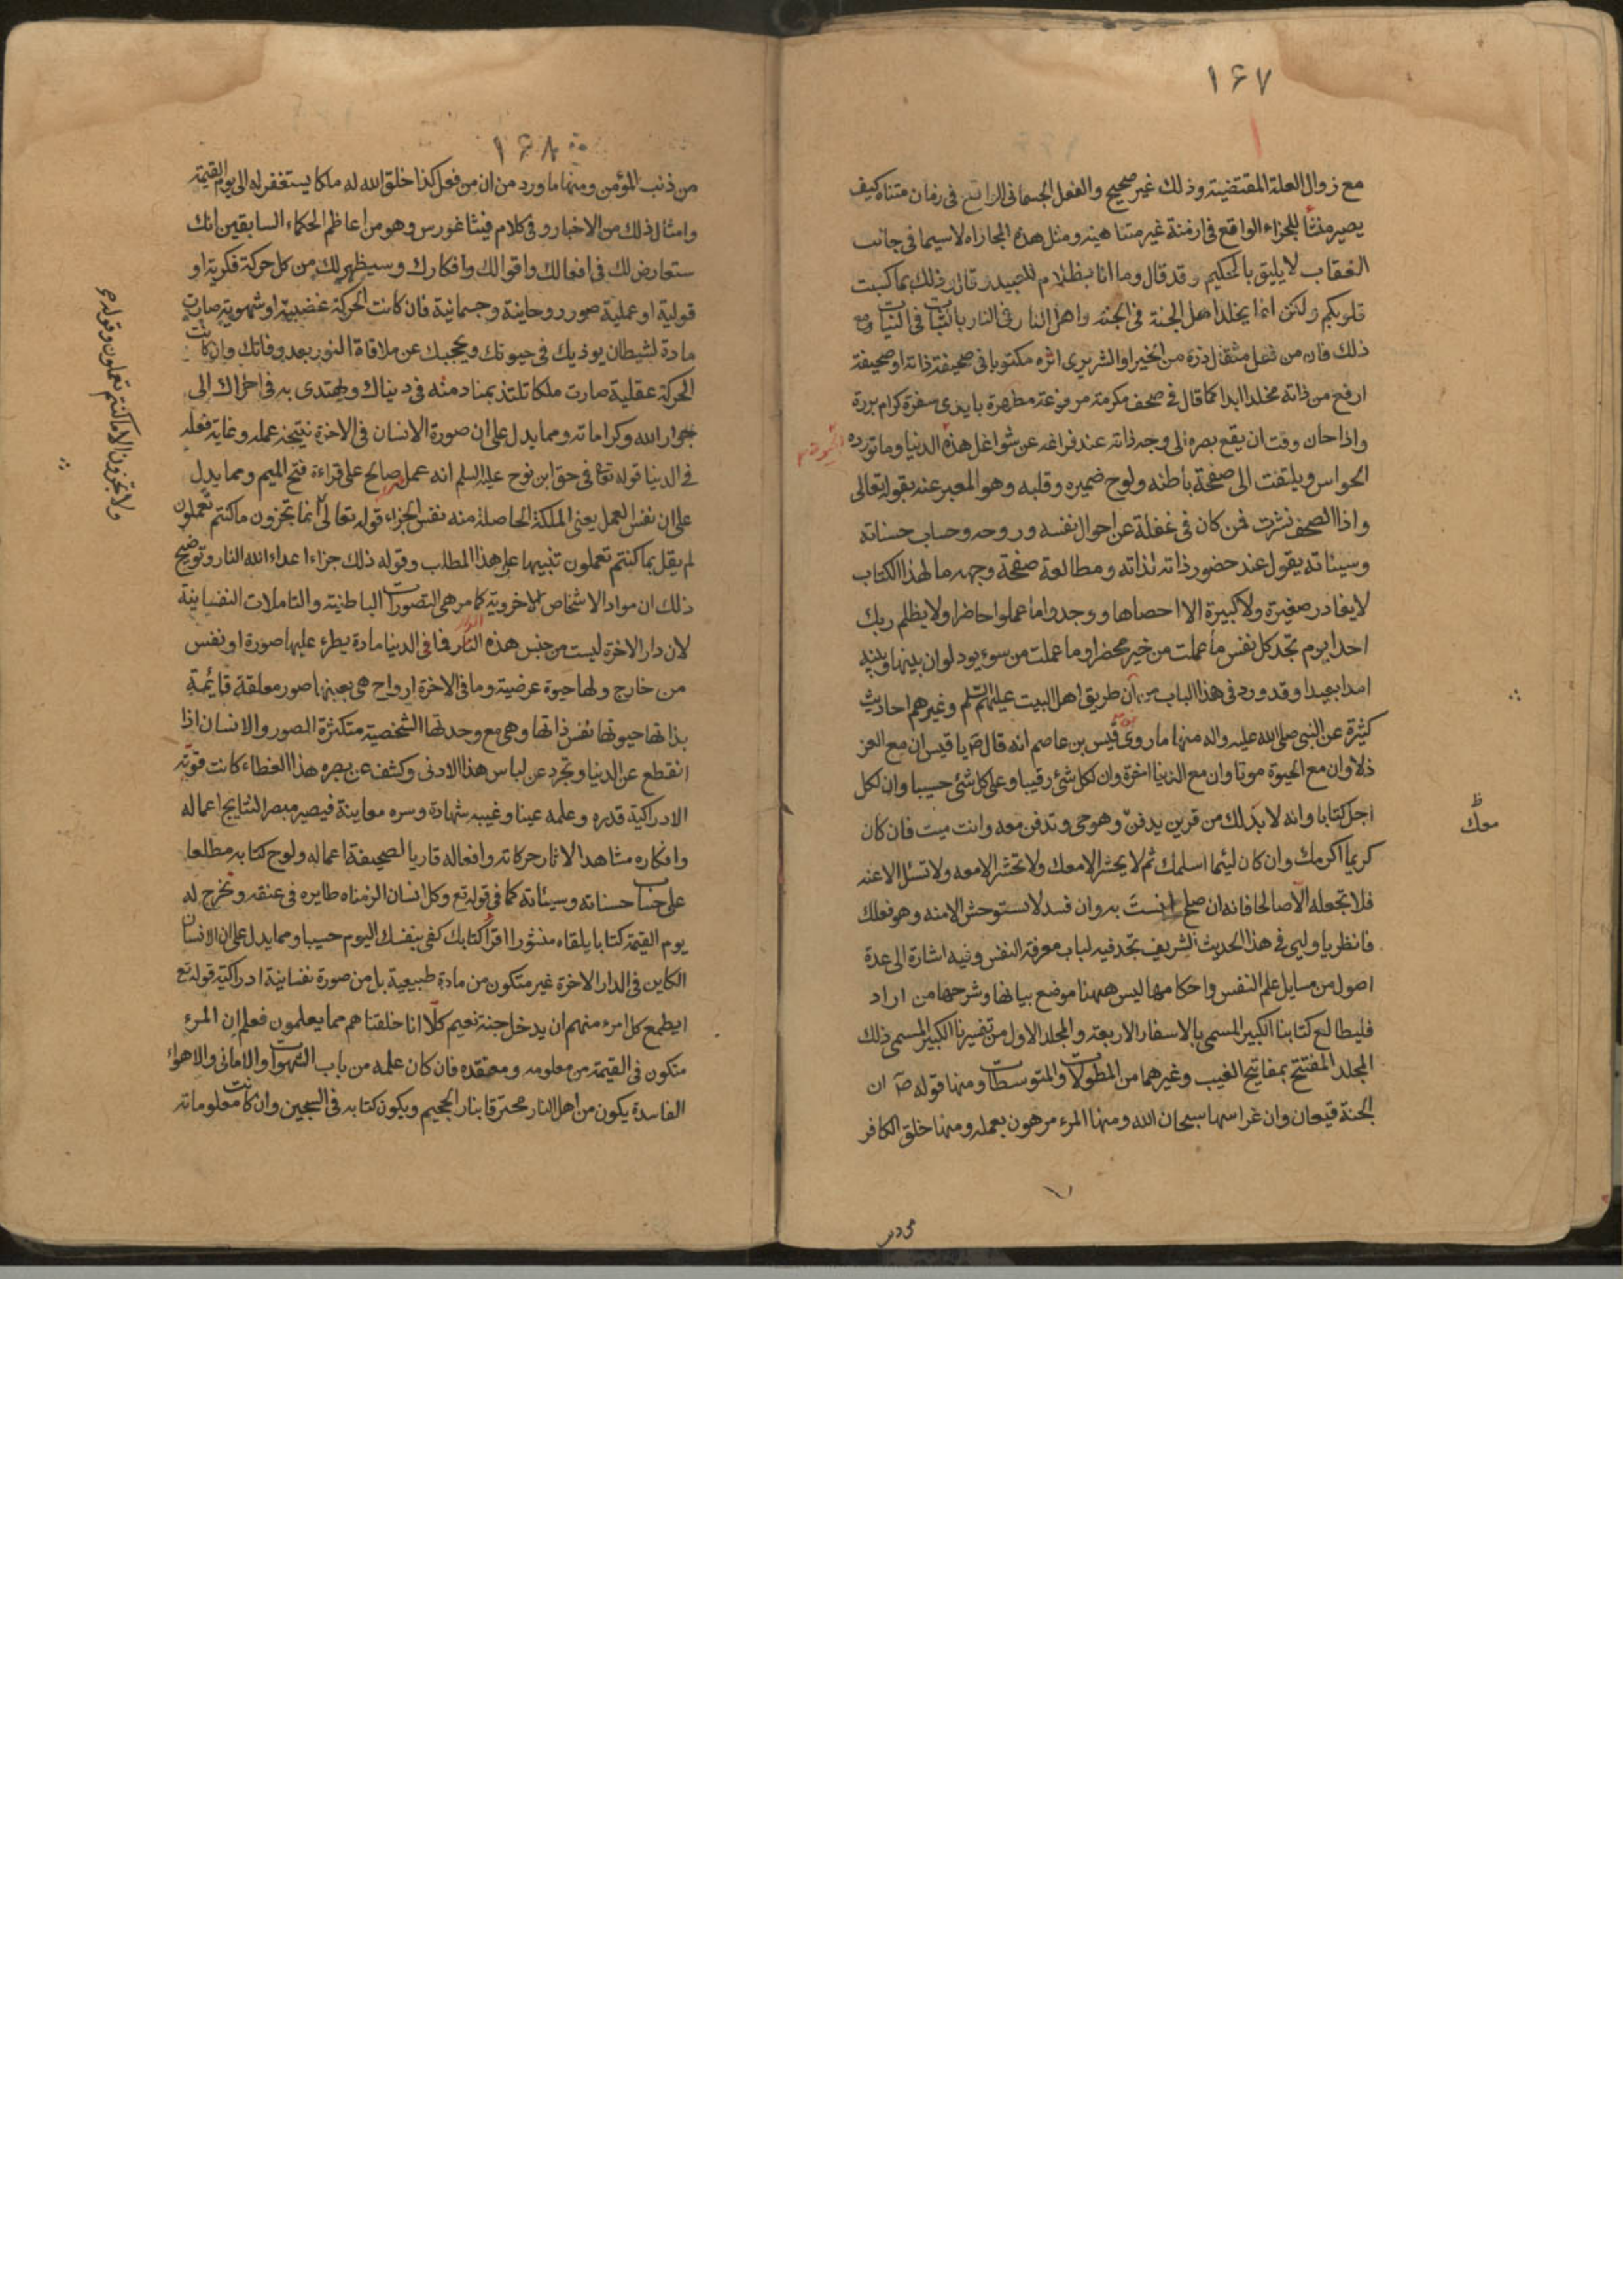 ١٦٧
مع زوال العلة المقتضية وذلك غير صحيح والفعل الجسمانى الواقع فى زمان متناه كيف
يصير منشأ للجزاء الواقع فى ازمنة غير متناهية ومثل هذه المجازاه لاسيما فى جانب
العقاب لا يليق بالحكيم وقد قال وما انا بظلام للعبيد وقال ذلك بما كسبت
قلوبكم ولكن انما يخلد اهل الجنة فى الجنة واهل النار فى النار بالثبات فى النيات ومع
ذلك فان من فعل مثقال ذرة من الخير او الشر يرى اثره مكتوبا فى صحيفة ذاته او صحيفة
ارفع من ذاته مخلدا ابدا كما قال فى صحف مكرمة مرفوعة مطهرة بايدى سفرة كرام بررة
واذا حان وقت ان يقع بصره الى وجه ذاته عند فراغه عن شواغل هذه الدنيا وما تورده
الحواس ويلتفت الى صفحة باطنه ولوح ضميره وقلبه وهو المعبر عنه بقوله تعالى
واذا الصحف نشرت فمن كان فى غفلة عن احوال نفسه وروحه وحساب حسناته
وسيئاته يقول عند حضور ذاته لذاته ومطالعة صفحة وجهه ما لهذا الكتاب
لا يغادر صغيرة ولا كبيرة الا احصاها ووجدوا ما عملوا حاضرا ولا يظلم ربك
احدا يوم تجد كل نفس ما عملت من خير محضرا وما عملت من سوء يود لو ان بينها وبينه
امدا بعيدا وقد ورد فى هذا الباب من طريق اهل البيت عليهم السلم وغيرهم احاديث
كثيرة عن النبى صلى الله عليه واله منها ما روى قيس بن عاصم انه قال ص يا قيس ان مع العز
ذلا وان مع الحيوة موتا وان مع الدنيا اخرة وان لكل شئ رقيبا وعلى كل شئ حسيبا وان لكل
اجل كتابا وانه لا بد لك من قرين يدفن وهو حى وتدفن معه وانت ميت فان كان
معك
كريما اكرمك وان كان لئيما اسلمك ثم لا يحشر الا معك ولا تحشر الا معه ولا تسئل الا عنه
فلا تجعله الا صالحا فانه ان صلح انست به وان فسد لا تستوحش الا منه وهو فعلك
فانظر يا وليى فى هذا الحديث الشريف تجد فيه لباب معرفة النفس وفيه اشارة الى عدة
اصول من مسايل علم النفس واحكامها ليس ههنا موضع بيانها وشرحها من اراد
فليطالع كتابنا الكبير المسمى بالاسفار الاربعة والمجلد الاول من تفسيرنا الكبير المسمى ذلك
المجلد المفتتح بمفاتيح الغيب وغيرهما من المطولات والمتوسطات ومنها قوله ص ان
الجنة قيعان وان غراسها سبحان الله ومنها المرء مرهون بعمله ومنها خلق الكافر
١٦٨
من ذنب المؤمن ومنها ما ورد من ان من فعل كذا خلق الله له ملكا يستغفر له الى يوم القيمة
وامثال ذلك من الاخبار وفى كلام فيثاغورس وهو من اعاظم الحكماء السابقين انك
ستعارض لك فى افعالك واقوالك وافكارك وسيظهر لك من كل حركة فكرية او
قولية او عملية صور روحانية وجسمانية فان كانت الحركة غضبية او شهوية صارت
مادة لشيطان يوذيك فى حيوتك ويحجبك عن ملاقاة النور بعد وفاتك وان كانت
الحركة عقلية صارت ملكا تلتذ بمنادمته فى دنياك وتهتدى به فى اخراك الى
جوار الله وكراماته ومما يدل على ان صورة الانسان فى الاخرة نتيجة عمله وغاية فعله
فى الدنيا قوله تعا فى حق ابن نوح عليه السلم انه عمل صالح على قراءة فتح الميم ومما يدل
على ان نفس العمل يعنى الملكة الحاصلة منه نفس الجزاء قوله تعالى انما تجزون ما كنتم تعملون
ولا تجزون الا ما كنتم تعملون وقوله
لم يقل بما كنتم تعملون تنبيها على هذا المطلب وقوله ذلك جزاء اعداء الله النار وتوضيح
ذلك ان مواد الاشخاص الاخروية كما مر هى التصورات الباطنية والتاملات النفسانية
لان دار الاخرة ليست من جنس هذه الدار فما فى الدنيا مادة يطرء عليها صورة او نفس
من خارج ولها حيوة عرضية وما فى الاخرة ارواح هى بعينها صور معلقة قائمة
بذاتها حيوتها نفس ذاتها وهى مع وحدتها الشخصية متكثرة الصور والانسان اذا
انقطع عن الدنيا وتجرد عن لباس هذا الادنى وكشف عن بصره هذا الغطاء كانت قوته
الادراكية قدره وعلمه عينا وغيبه شهادة وسره معاينة فيصير مبصرا لنتايج اعماله
وافكاره مشاهدا لاثار حركاته وافعاله قاريا لصحيفة اعماله ولوح كتابه مطلعا
على حساب حسناته وسيئاته كما فى قوله تع وكل انسان الزمناه طايره فى عنقه ونخرج له
يوم القيمة كتابا يلقاه منشورا اقرأ كتابك كفى بنفسك اليوم حسيبا ومما يدل على ان الانسان
الكاين فى الدار الاخرة غير متكون من مادة طبيعية بل من صورة نفسانية ادراكية قوله تع
ايطمع كل امرء منهم ان يدخل جنة نعيم كلا انا خلقناهم مما يعلمون فعلم ان المرء
متكون فى القيمة من معلومه ومعتقده فان كان علمه من باب الشهوات والامانى والاهواء
الفاسدة يكون من اهل النار محترقا بنار الجحيم ويكون كتابه فى السجين وان كانت معلوماته